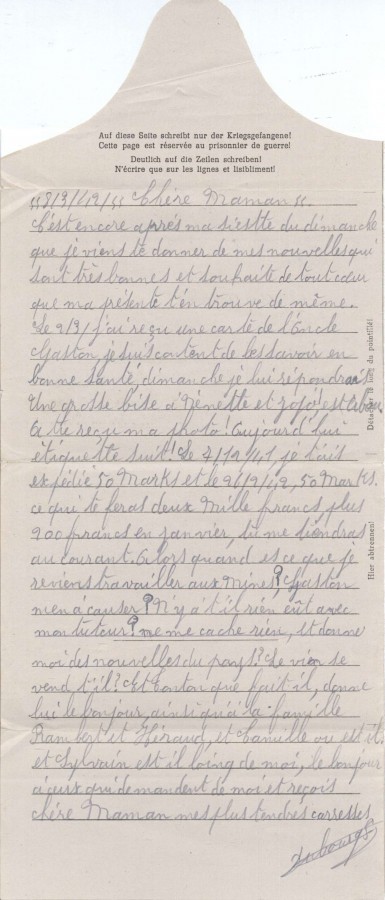 Auf diese Seite schreibt nur der Kriegsgefangene!
Cette page est réservée au prisonnier de guerre!
Deutlich auf die Zeilen schreiben!
N'écrire que sur les lignes et lisiblement!
Chère Maman
C'est encore après ma sieste du dimanche
que je viens te donner de mes nouvelles qui
sont très bonnes et souhaite de tout cœur
que ma présente t'en trouve de même.
Le 9/3/ j'ai reçu une carte de l'Oncle
Gaston, je suis content de les savoir en
bonne santé, dimanche je lui répondrait
Une grosse bise à Nénette et zozo! est
A tu reçu ma photo! Aujourd'hui
étiquette suit! Le je t'ais
expédié 50 Marks et le 50 Marks.
ce qui te feras deux Mille francs plus
900 francs en janvier, tu me tiendras
au courant. Alors quand es ce que je
reviens travailler aux Mines? Gaston
m'en a causer? N'y a t'il rien eût avec
mon tuteur? ne me cache rien, et donne
moi des nouvelles du pays? Le vien se
vend t'il? Et Tonton que fait-il, donne
lui le bonjour ainsi qu'à la famille
Rambert et Héraud, et Camille ou est il
et Sylvain est il loing de moi, le bonjour
à ceux qui demandent de moi et reçois
chère Maman mes plus tendres carresses
Détacher le long du pointillé!
Hier abtrennen!